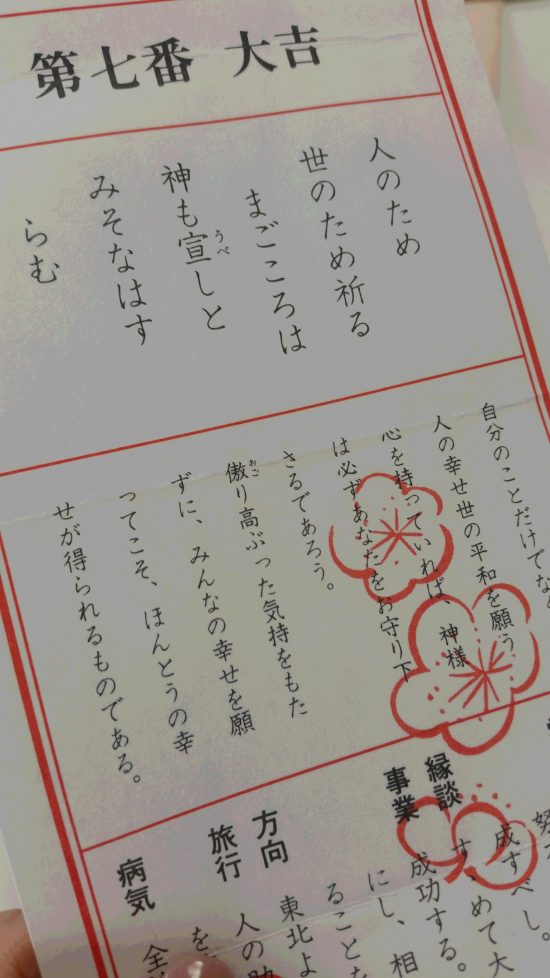 第七番 大吉
人のため
世のため祈る
まごころは
神も宣しと
うべ
みそなはす
らむ
自分のことだけでなく
人の幸せ世の平和を願う
心を持っていれば、神様
は必ずあなたをお守り下
さるであろう。
傲り高ぶった気持をもた
おご
ずに、みんなの幸せを願
ってこそ、ほんとうの幸
せが得られるものである。
成すべし。
縁談
すゝめて大
事業
成功する。
にし、相
ることを
方向
東北よ
旅行
人の助
を
病気